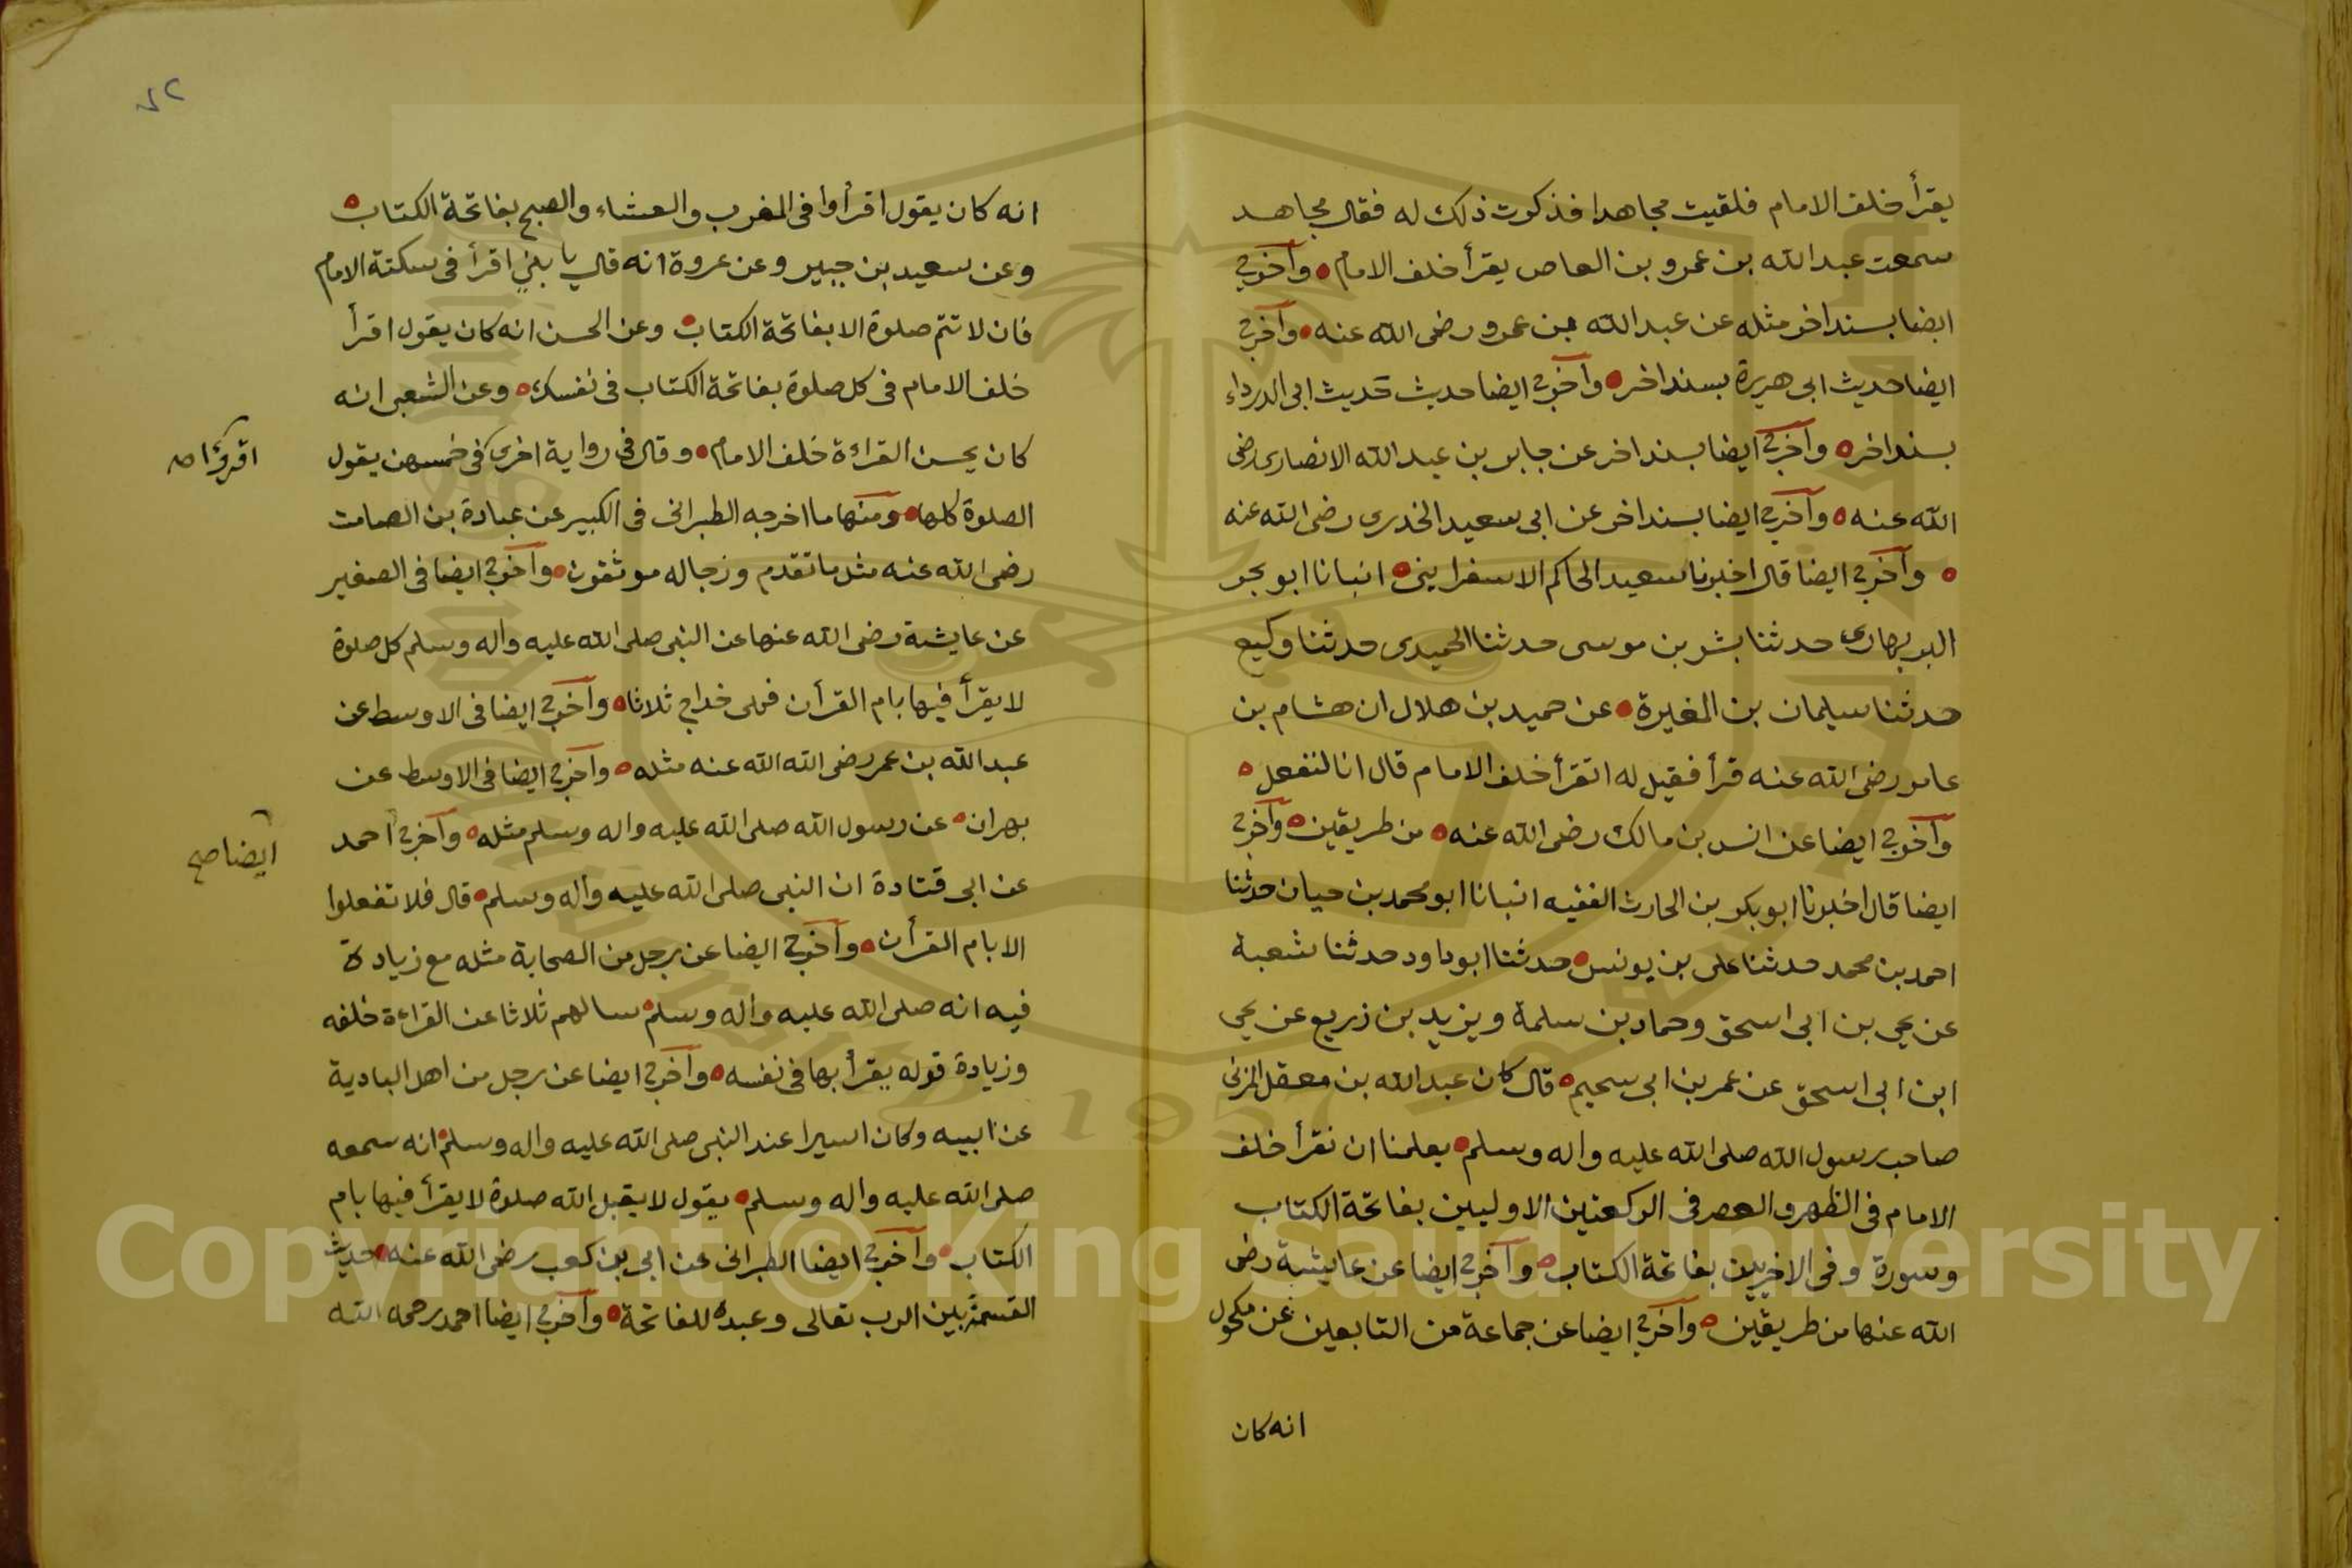 يقرأ خلف الامام فلقيت مجاهدا فذكرت ذلك له فقال مجاهد
سمعت عبد الله بن عمرو بن العاص يقرأ خلف الامام وأخرج
ايضا بسند اخر مثله عن عبد الله بن عمرو رضى الله عنه وأخرج
ايضا حديث ابى هريرة بسند اخر وأخرج ايضا حديث حديث ابى الدرداء
بسند اخر وأخرج ايضا بسند اخر عن جابر بن عبد الله الانصارى رضى
الله عنه وأخرج ايضا بسند اخر عن ابى سعيد الخدرى رضى الله عنه
وأخرج ايضا قال اخبرنا سعيد الحاكم الاسفراينى انبانا ابو بحر
البربهارى حدثنا بشر بن موسى حدثنا الحميدى حدثنا وكيع
حدثنا سليمان بن المغيرة عن حميد بن هلال ان هشام بن
عامر رضى الله عنه قرأ فقيل له اتقرأ خلف الامام قال انا لنفعل
وأخرج ايضا عن انس بن مالك رضى الله عنه من طريقين وأخرج
ايضا قال اخبرنا ابو بكر بن الحارث الفقيه انبانا ابو محمد بن حيان حدثنا
احمد بن محمد حدثنا على بن يونس حدثنا ابو داود حدثنا شعبة
عن يحي بن ابى اسحق وحماد بن سلمة ويزيد بن زريع عن يحي
ابن ابى اسحق عن عمر بن ابى سحيم قال كان عبد الله بن معقل المزنى
صاحب رسول الله صلى الله عليه واله وسلم يعلمنا ان نقرأ خلف
الامام فى الظهر والعصر فى الركعتين الاوليين بفاتحة الكتاب
وسورة وفى الاخريين بفاتحة الكتاب وأخرج ايضا عن عايشة رضى
الله عنها من طريقين وأخرج ايضا عن جماعة من التابعين عن مكحول
انه كان
انه كان يقول اقرأوا فى المغرب والعشاء والصبح بفاتحة الكتاب
وعن سعيد بن جبير وعن عروة انه قال يا بني اقرأ فى سكتة الامام
فان لا تتم صلوة الا بفاتحة الكتاب وعن الحسن انه كان يقول اقرأ
خلف الامام فى كل صلوة بفاتحة الكتاب فى نفسك وعن الشعبى انه
كان يحسن القراءة خلف الامام وقال فى رواية اخرى فى خمسهن يقول
اقرؤا صح
الصلوة كلها ومنها ما اخرجه الطبرانى فى الكبير عن عبادة بن الصامت
رضى الله عنه مثل ما تقدم ورجاله موثقون وأخرج ايضا فى الصغير
عن عايشة رضى الله عنها عن النبى صلى الله عليه واله وسلم كل صلوة
لا يقرأ فيها بام القرأن فهى خداج ثلاثا وأخرج ايضا فى الاوسط عن
عبد الله بن عمر رضى الله الله عنه مثله وأخرج ايضا فى الاوسط عن
بهران عن رسول الله صلى الله عليه واله وسلم مثله وأخرج احمد
ايضا صح
عن ابى قتادة ان النبى صلى الله عليه واله وسلم قال فلا تفعلوا
الا بام القرأن وأخرج ايضا عن رجل من الصحابة مثله مع زيادة
فيه انه صلى الله عليه واله وسلم سالهم ثلاثا عن القراءة خلفه
وزيادة قوله يقرأ بها فى نفسه وأخرج ايضا عن رجل من اهل البادية
عن ابيه وكان اسيرا عند النبى صلى الله عليه واله وسلم انه سمعه
صلى الله عليه واله وسلم يقول لا يقبل الله صلوة لا يقرأ فيها بام
الكتاب وأخرج ايضا الطبرانى عن ابى بن كعب رضى الله عنه حديث
القسمة بين الرب تعالى وعبده للفاتحة وأخرج ايضا احمد رحمه الله
Copyright © King Saud University
1957